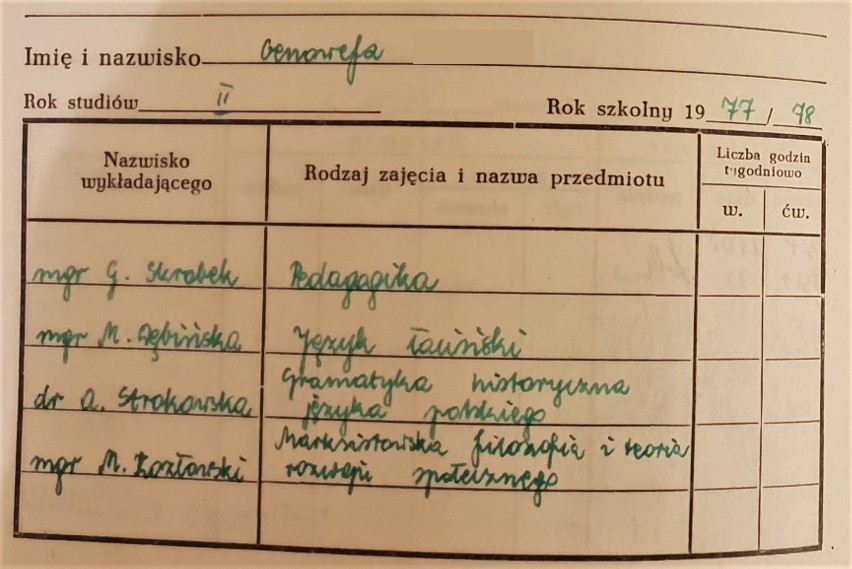 Imię i nazwisko Genowefa
Rok studiów II Rok szkolny 19 77 / 78
Nazwisko wykładającego Rodzaj zajęcia i nazwa przedmiotu Liczba godzin tygodniowo
w. ćw.
mgr G. Skrobek Pedagogika
mgr M. Dębińska Język łaciński
dr A. Strokowska Gramatyka historyczna
języka polskiego
mgr M. Kozłowski Marksistowska filozofia i teoria
rozwoju społecznego